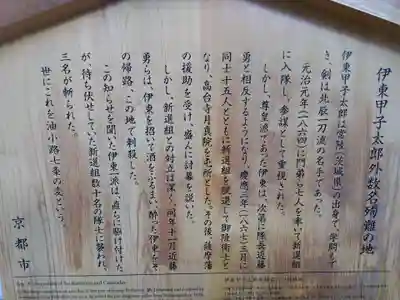 伊東甲子太郎外数名殉難の地
伊東甲子太郎は常陸(茨城県)の出身で、学問もで
き、剣は北辰一刀流の名手であった。
元治元年(一八六四)に門弟ら七人を率いて新選組
に入隊し、参謀として重視された。
しかし、尊皇派であった伊東は、次第に隊長近藤
勇と相反するようになり、慶應三年(一八六七)三月に
同士十五人とともに新選組を脱退して御陵衛士と
なり、高台寺月真院を屯所とした。その後、薩摩藩
の援助を受け、盛んに討幕を説いた。
しかし、新選組との対立は深く、同年十一月近藤
勇らは、伊東を招いて酒をふるまい、酔った伊東をそ
の帰路、この地で刺殺した。
この知らせを聞いた伊東一派は、直ちに駆け付けた
が、待ち伏せしていた新選組数十名の隊士に襲われ、
三名が斬られた。
世にこれを油小路七条の変という。
京都市